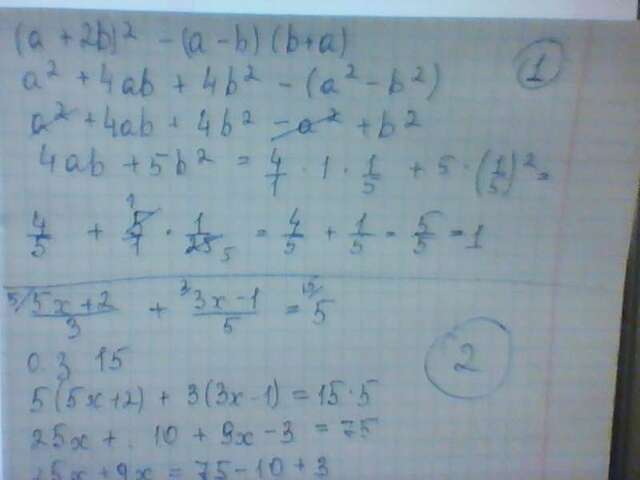 (a + 2b)² - (a - b)(b + a)
a² + 4ab + 4b² - (a² - b²)
1
a² + 4ab + 4b² - a² + b²
4ab + 5b² = 4/1 · 1 · 1/5 + 5 · (1/5)² =
4/5 + 5/1 · 1/25 5 = 4/5 + 1/5 = 5/5 = 1
5/ 5x + 2 / 3 + 3/ 3x - 1 / 5 = 15/ 5
2
о.з 15
5(5x + 2) + 3(3x - 1) = 15 · 5
25x + . 10 + 9x - 3 = 75
25x + 9x = 75 - 10 + 3